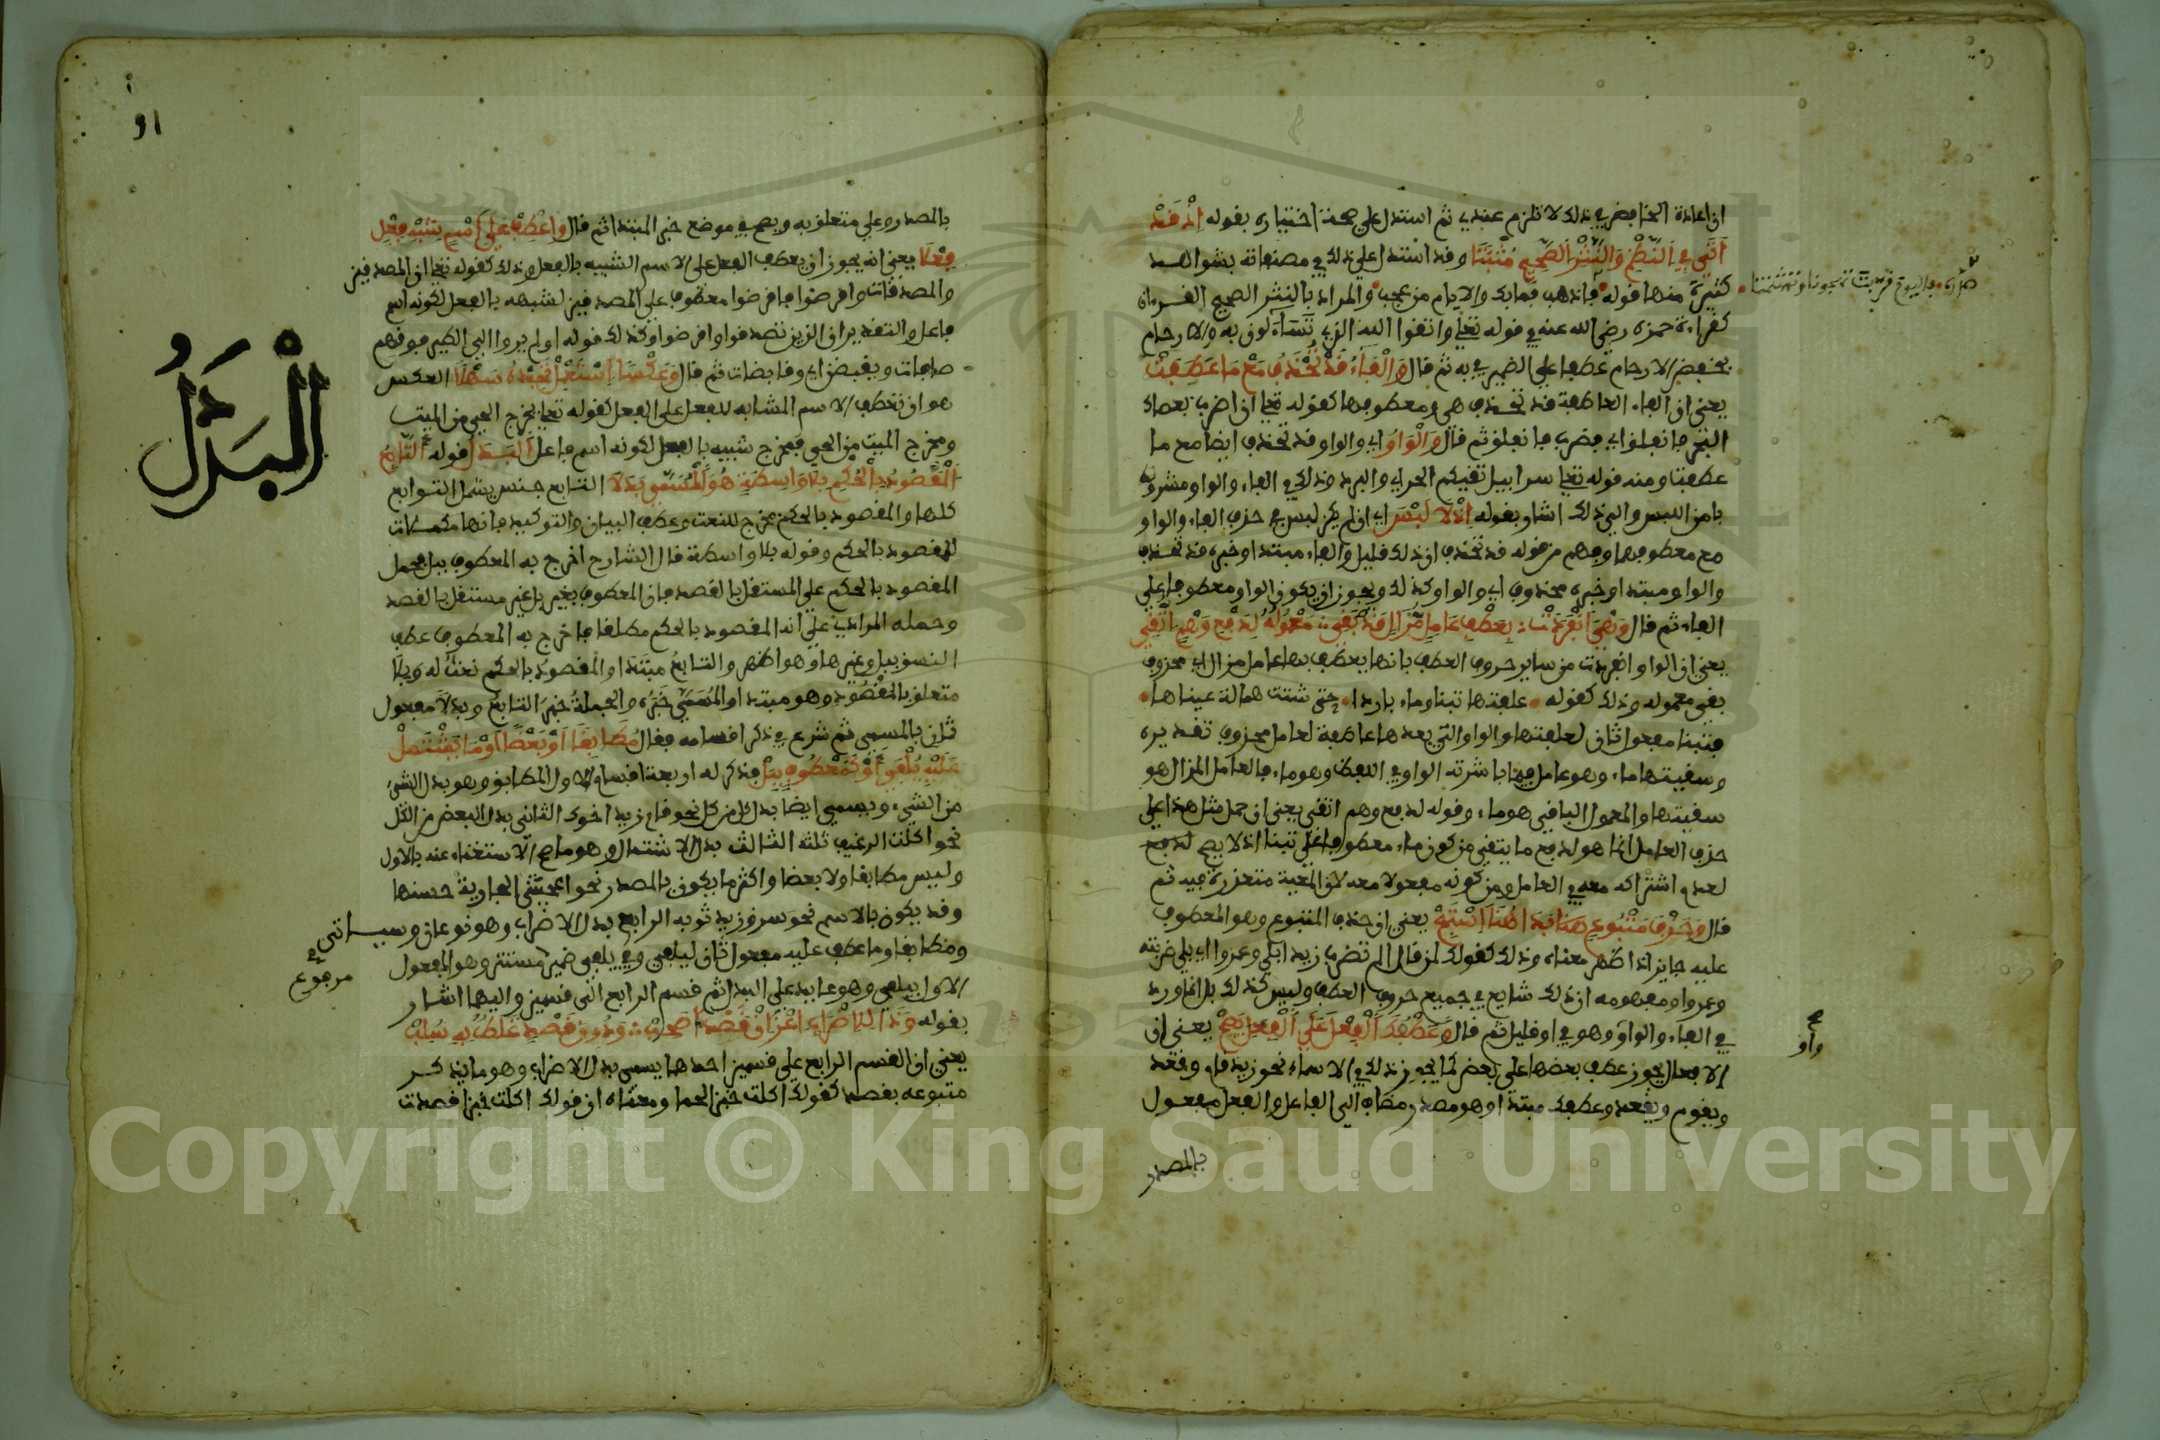 ان اعادة الخافض في ذلك لا تلزم عندي ثم استدل على صحة اختياره بقوله اذ قد
أتى في النظم والنثر الصحيح مثبتا وقد استدل على ذلك في مصنفاته بشواهد
كثيرة منها قوله فاذهب فما بك والايام من عجب والمراد بالنثر الصحيح القرءان
صدره فاليوم قربت تهجونا وتشتمنا
كقراءة حمزة رضي الله عنه في قوله تعالى واتقوا الله الذي تساءلون به والارحام
بخفض الارحام عطفا على الضمير في به ثم قال والفاء قد تحذف مع ما عطفت
يعني ان الفاء العاطفة قد تحذف هي ومعطوفها كقوله تعالى ان اضرب بعصاك
البحر فانفلق اي فضرب فانفلق ثم قال والواو اي والواو قد تحذف ايضا مع ما
عطفتا ومنه قوله تعالى سرابيل تقيكم الحر اي والبرد وذلك في الفاء والواو مشروط
بامن اللبس والى ذلك اشار بقوله اذ لا لبس اي ان لم يكن لبس في حذف الفاء والواو
مع معطوفهما وفهم من قوله قد تحذف ان ذلك قليل والفاء مبتدا وخبره قد تحذف
والواو مبتدا وخبره محذوف اي والواو كذلك ويجوز ان يكون الواو معطوفا على
الفاء ثم قال وهي انفردت بعطف عامل مزال قد بقي معموله لدفع وهم اتقي
يعني ان الواو انفردت من ساير حروف العطف بانها يعطف بها عامل مزال اي محذوف
بقي معموله وذلك كقوله علفتها تبنا وماء باردا حتى شتت همالة عيناها
فتبنا مفعول ثان لعلفتها والواو التي بعدها عاطفة لعامل محذوف تقديره
وسقيتها ماء وهو عامل فيما باشرته الواو في اللفظ وهو ماء فالعامل المزال هو
سقيتها والمعمول الباقي هو ماء وقوله لدفع وهم اتقي يعني ان حمل مثل هذا على
حذف العامل انما هو لدفع ما يتقى من كون ماء معطوفا على تبنا اذ لا يصح لدفع
لعدم اشتراكه معه في العامل ومن كونه مفعولا معه لان المعية متعذرة فيه ثم
قال وحذف متبوع بدا هنا استبح يعني ان حذف المتبوع وهو المعطوف
عليه جايز اذا ظهر معناه وذلك كقولك لمن قال الم تضرب زيدا بلى وعمروا اي بلى ضربته
وعمروا ومفهومه ان ذلك شايع في جميع حروف العطف وليس كذلك بل انما ورد
في الفاء والواو وهو في او قليل ثم قال وعطفك الفعل على الفعل يصح يعني ان
واو
الافعال يجوز عطف بعضها على بعض كما يجوز ذلك في الاسماء نحو زيد قام وقعد
ويقوم ويقعد وعطفك مبتدا وهو مصدر مضاف الى الفاعل والفعل مفعول
بالمصدر
او
بالمصدر وعلى متعلق به ويصح في موضع خبر المبتدا ثم قال واعطف على اسم شبه فعل
فعلا يعني انه يجوز ان يعطف الفعل على الاسم الشبيه بالفعل وذلك كقوله تعالى ان المصدقين
والمصدقات واقرضوا فاقرضوا معطوف على المصدقين لشبهه بالفعل لكونه اسم
فاعل والتقدير ان الذين تصدقوا واقرضوا وكذلك قوله اولم يروا الى الطير فوقهم
صافات ويقبضن اي وقابضات ثم قال وعكسا استعمل تجده سهلا العكس
هو ان تعطف الاسم المشابه للفعل على الفعل كقوله تعالى يخرج الحي من الميت
ومخرج الميت من الحي فمخرج شبيه بالفعل لكونه اسم فاعل البدل قوله التابع
المقصود بالحكم بلا واسطة هو المسمى بدلا التابع جنس يشمل التوابع
البدل
كلها والمقصود بالحكم مخرج للنعت وعطف البيان والتوكيد فانها مكملات
للمقصود بالحكم وقوله بلا واسطة قال الشارح اخرج به المعطوف ببل فحمل
المقصود بالحكم على المستقل بالقصد فان المعطوف بغير بل غير مستقل بالقصد
وحمله المرادي على انه المقصود بالحكم مطلقا فاخرج به المعطوف عطف
النسق ببل وغيرها وهو اظهر والتابع مبتدا والمقصود بالحكم نعت له وبلا
متعلق بالمقصود وهو مبتدا والمسمى خبره والجملة خبر التابع وبدلا مفعول
ثان بالمسمى ثم شرع في ذكر اقسامه فقال مطابقا او بعضا او ما يشتمل
عليه يلفى او كمعطوف ببل فذكر له اربعة اقسام الاول المطابق وهو بدل الشيء
من الشيء ويسمى ايضا بدل كل من كل نحو قام زيد اخوك الثاني بدل البعض من الكل
نحو اكلت الرغيف ثلثه الثالث بدل الاشتمال وهو ما صح الاستغناء عنه بالاول
وليس مطابقا ولا بعضا واكثر ما يكون بالمصدر نحو اعجبتني الجارية حسنها
وقد يكون بالاسم نحو سرق زيد ثوبه الرابع بدل الاضراب وهو نوعان وسياتي
ومطابقا وما عطف عليه مفعول ثان ليلفى وفي يلفى ضمير مستتر وهو المفعول
مرفوع
الاول بيلفى وهو عايد على البدل ثم قسم الرابع الى قسمين واليها اشار
بقوله وذا للاضراب اعز ان قصدا صحب ودون قصد غلط به سلب
يعني ان القسم الرابع على قسمين احدهما يسمى بدل الاضراب وهو ما يذكر
متبوعه بقصد كقولك اكلت خبزا لحما ومعناه ان قولك اكلت خبزا قصدت
Copyright © King Saud University